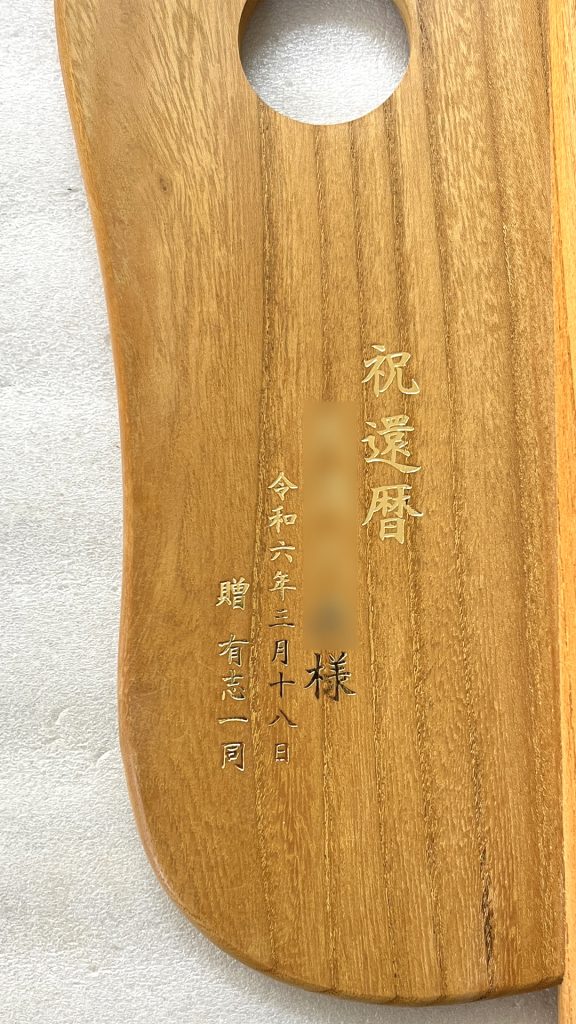 祝還暦
様
令和六年三月十八日
贈 有志一同